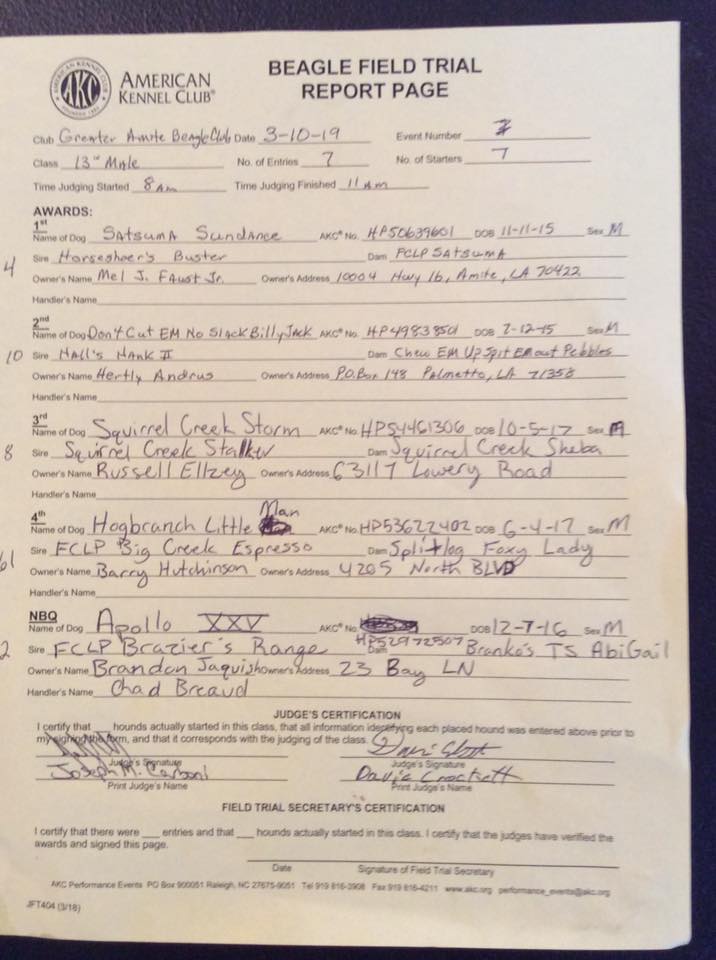 AMERICAN KENNEL CLUB
AKC
AMERICAN
KENNEL CLUB®
BEAGLE FIELD TRIAL
REPORT PAGE
Club Greater Amite Beagle Club Date 3-10-19 Event Number
Class 13" Male No. of Entries 7 No. of Starters 7
Time Judging Started 8 Am Time Judging Finished 11 Am
AWARDS:
1st
Name of Dog Satsuma Sundance AKC® No. HP50639601 DOB 11-11-15 Sex M
4 Sire Horseshoer's Buster Dam FCLP Satsuma
Owner's Name Mel J. Faust Jr. Owner's Address 10004 Hwy 16, Amite, LA 70422
Handler's Name
2nd
Name of Dog Don't Cut EM No Slack Billy Jack AKC® No. HP49838501 DOB 2-12-15 Sex M
10 Sire Hall's Hank II Dam Chew EM Up Spit EM out Pebbles
Owner's Name Hertly Andrus Owner's Address P.O. Box 148 Palmetto, LA 71358
Handler's Name
3rd
Name of Dog Squirrel Creek Storm AKC® No. HP54461306 DOB 10-5-17 Sex M
8 Sire Squirrel Creek Stalker Dam Squirrel Creek Sheba
Owner's Name Russell Ellzey Owner's Address 63117 Lowery Road
Handler's Name
4th
Name of Dog Hogbranch Little Man AKC® No. HP53622402 DOB 6-4-17 Sex M
61 Sire FCLP Big Creek Espresso Dam Splitlog Foxy Lady
Owner's Name Barry Hutchinson Owner's Address 4205 North BLVD
Handler's Name
NBQ
Name of Dog Apollo XXV AKC® No. HP52972507 DOB 12-7-16 Sex M
2 Sire FCLP Brazier's Range Dam Branko's TS AbiGail
Owner's Name Brandon Jaquish Owner's Address 23 Bay LN
Handler's Name Chad Breaud
JUDGE'S CERTIFICATION
I certify that ___ hounds actually started in this class, that all information identifying each placed hound was entered above prior to
my signing the form, and that it corresponds with the judging of the class.
Judge's Signature Judge's Signature
Joseph M. Carboni Davie Crockett
Print Judge's Name Print Judge's Name
FIELD TRIAL SECRETARY'S CERTIFICATION
I certify that there were ___ entries and that ___ hounds actually started in this class. I certify that the judges have verified the
awards and signed this page.
Date Signature of Field Trial Secretary
AKC Performance Events PO Box 900051 Raleigh, NC 27675-9051 Tel 919 816-3908 Fax 919 816-4211 www.akc.org performance_events@akc.org
JFT404 (3/18)